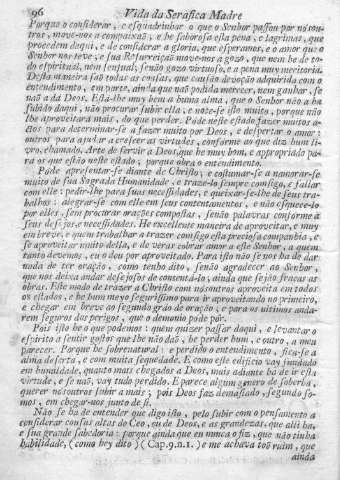 96 Vida da Serafica Madre
Porque o considerar, e esquadrinhar o que o Senhor passou por nós ou-
tros, move-nos a compaixaõ, e he saborosa esta pena, e lagrimas, que
procedem daqui, e de considerar a gloria, que esperamos, e o amor que o
Senhor nos teve, e sua Resurreiçaõ move-nos a gozo, que nem he de to-
do espiritual, nem sensual, senaõ gozo virtuoso, e a pena muy meritoria.
Desta maneira saõ todas as cousas, que causaõ devoçaõ adquirida com o
entendimento, em parte, ainda que naõ podida merecer, nem ganhar, se
naõ a dá Deos. Está-lhe muy bem a huma alma, que o Senhor naõ a ha
subido daqui, naõ procurar subir ella; e note-se isto muito, porque naõ
lhe aproveitará mais, do que perder. Póde neste estado fazer muitos a-
ctos para determinar-se a fazer muito por Deos, e despertar o amor:
outros para ajudar a crescer as virtudes, conforme ao que diz hum li-
vro, chamado, Arte de servir a Deos, que he muy bom, e apropriado pa-
ra os que estão neste estado; porque obra o entendimento.
Póde apresentar-se diante de Christo; e costumar-se a namorar-se
muito de sua Sagrada Humanidade, e trazelo sempre comsigo, e fallar
com elle: pedir-lhe para suas necessidades, e queixar-se-lhe de seus tra-
balhos: alegrar-se com elle em seus contentamentos, e naõ esquece-lo
por elles, sem procurar orações compostas, senaõ palavras conforme a
seus desejos, e necessidades. He excellente maneira de aproveitar, e muy
em breve, e quem trabalhar a trazer comsigo esta preciosa companhia, e
se aproveitar muito della, e de veras cobrar amor a este Senhor, a quem
tanto devemos, eu o dou por aproveitado. Para isto naõ se nos ha de dar
nada de ter oraçaõ, como tenho dito, senaõ agradecer ao Senhor,
que nos deixa andar desejosos de contenta-lo, ainda que sejaõ fracas as
obras. Este modo de trazer a Christo com nósoutros aproveita em todos
os estados, e he hum meyo segurissimo para ir aproveitando no primeiro,
e chegar em breve ao segundo gráo de oraçaõ; e para os ultimos anda-
rem seguros dos perigos, que o demonio póde pôr.
Pois isto he o que podemos: quem quizer passar daqui, e levantar o
espirito a sentir gostos que lhe naõ daõ, he perder hum, e outro, a meu
parecer. Porque he sobrenatural: e perdido o entendimento, fica-se a
alma deserta, e com muita sequedade. E como este edificio vay fundado
em humildade, quanto mais chegados a Deos, mais adiante ha de ir esta
virtude, e se naõ, vay tudo perdido. E parece algum genero de soberba,
querer nósoutros subir a mais; pois Deos faz demasiado, segundo so-
mos, em chegar-nos junto de si.
Naõ se ha de entender que digo isto, pelo subir com o pensamento a
considerar cousas altas do Ceo, ou de Deos, e as grandezas, que alli ha,
e sua grande sabedoria: porque ainda que eu nunca o fiz, que naõ tinha
habilidade, (como hey dito) (Cap.9.n.1.) e me achava taõ ruim, que
ainda